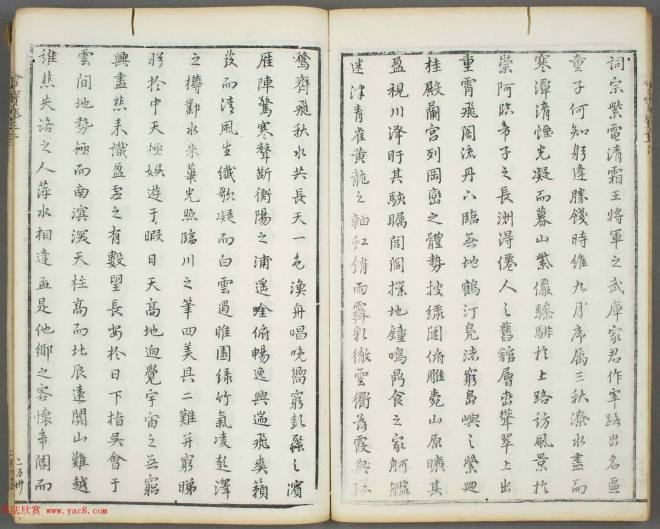 詞宗紫電清霜王將軍之武庫家君作宰路出名區
童子何知躬逢勝餞時維九月序屬三秋潦水盡而
寒潭清煙光凝而暮山紫儼驂騑於上路訪風景於
崇阿臨帝子之長洲得僊人之舊館層巒聳翠上出
重霄飛閣流丹下臨無地鶴汀鳧渚窮島嶼之縈迴
桂殿蘭宮列岡巒之體勢披綉闥俯雕甍山原曠其
盈視川澤盱其駭矚閭閻撲地鐘鳴鼎食之家舸艦
迷津青雀黃龍之軸虹銷雨霽彩徹雲衢落霞與孤
鶩齊飛秋水共長天一色漁舟唱晚響窮彭蠡之濱
雁陣驚寒聲斷衡陽之浦遥吟俯暢逸興遄飛爽籟
發而清風生纖歌凝而白雲遏睢園綠竹氣凌彭澤
之樽鄴水朱華光照臨川之筆四美具二難并窮睇
眄於中天極娛遊于暇日天高地迥覺宇宙之無窮
興盡悲來識盈虛之有數望長安於日下指吳會于
雲間地勢極而南溟深天柱高而北辰遠關山難越
誰悲失路之人萍水相逢盡是他鄉之客懷帝閽而
書法欣賞 www.yac8.com